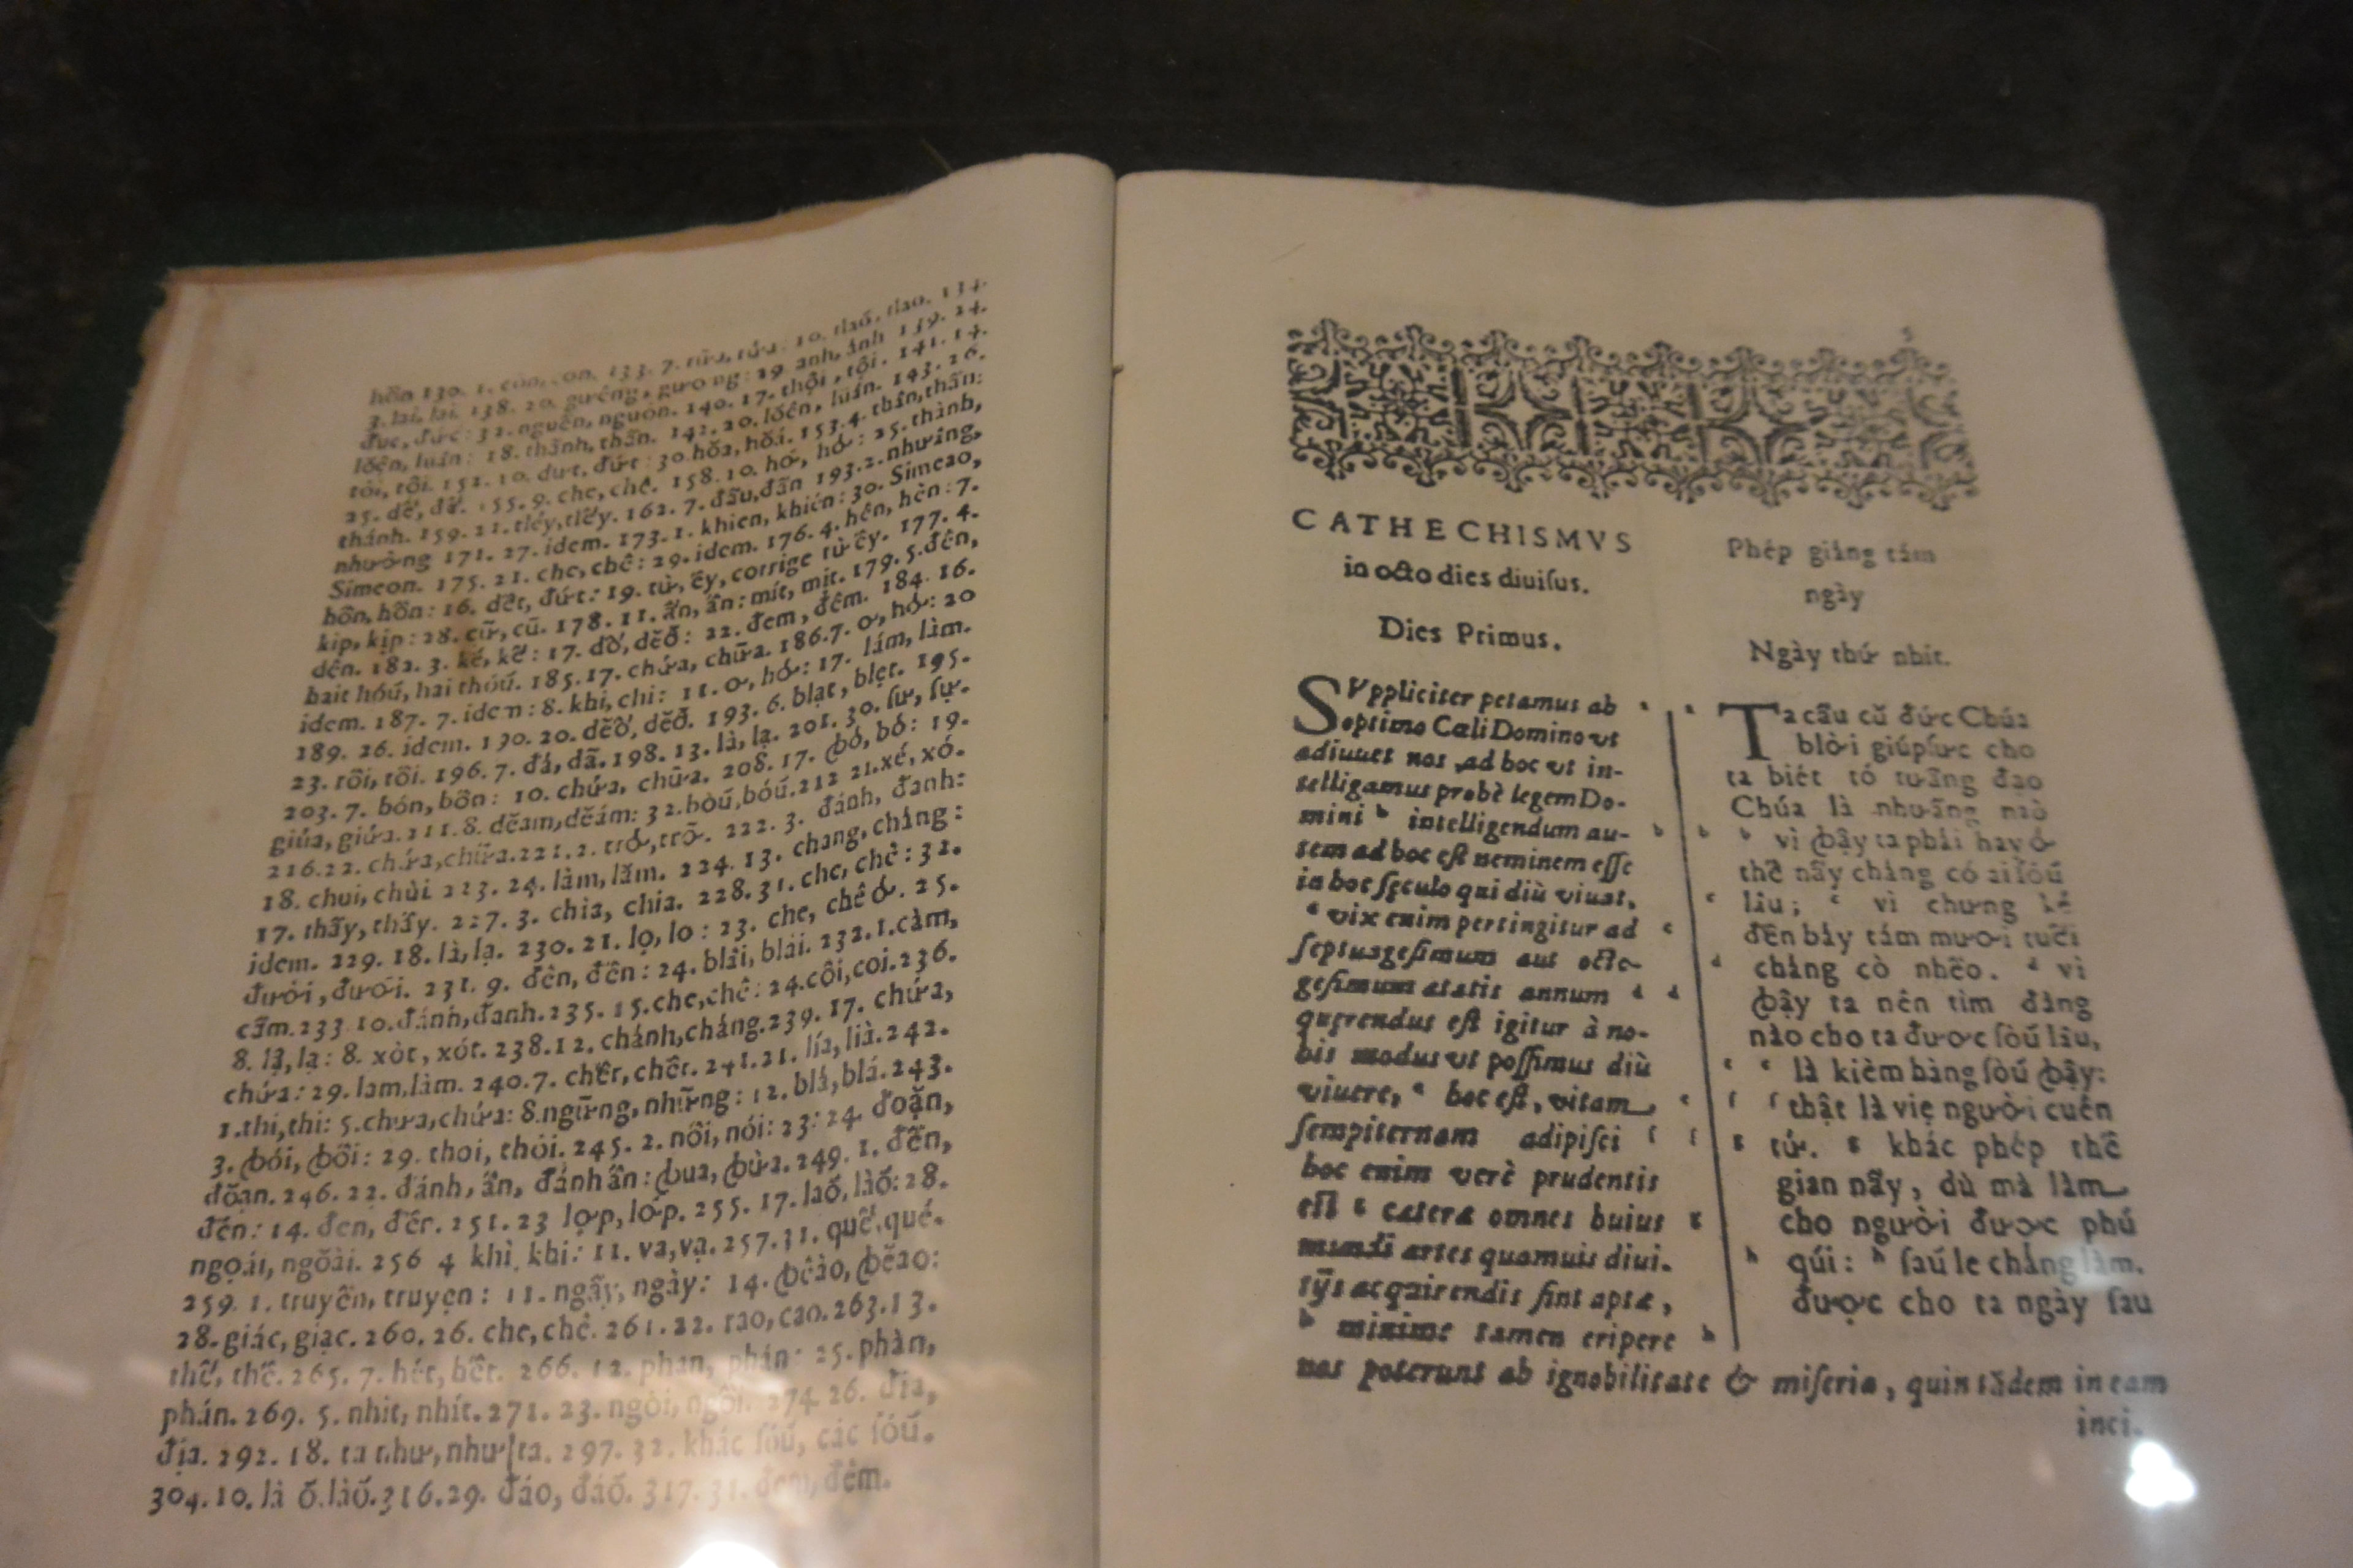 hôn 130. 1. con, con. 133. 7. tữa, tứa: 10. tlaó, tlao. 134.
3. lai, lai. 138. 20. gương, gương: 29 anh, ảnh 139. 24.
đục, đức: 32. nguên, nguồn. 140. 17. thội, tội. 141. 14.
lŏên, luân: 18. thành, thần. 142. 20. lŏên, luân. 143. 26.
tòi, tội. 152. 10. dut, đứt: 30. hŏa, hŏá. 153. 4. thân, thần:
25. dế, để. 155. 9. che, chê. 158. 10. hơ, hớ: 25. thành,
thánh. 159. 21. tléy, tlếy. 162. 7. đấu, dấn 193. 2. nhưỡng,
nhường 171. 27. idem. 173. 1. khien, khién: 30. Simeao,
Simeon. 175. 21. che, chê: 29. idem. 176. 4. hên, hèn: 7.
hôn, hồn: 16. dết, đứt: 19. từ, êy, corrige từ êy. 177. 4.
kip, kịp: 28. cữ, cũ. 178. 11. ấn, ân: mít, mịt. 179. 5. đên,
dên. 182. 3. ké, kẻ: 17. dổ, dĕŏ: 22. đem, đêm. 184. 16.
bait hóű, hai thóű. 185. 17. chứa, chữa. 186. 7. ơ, hớ: 20
idem. 187. 7. idem: 8. khi, chi: 11. ơ, hớ: 17. lám, làm.
189. 26. idem. 190. 20. dĕŏ, dĕŏ. 193. 6. blạt, blẹt. 195.
23. tôi, tôi. 196. 7. đá, dã. 198. 13. là, lạ. 201. 30. sư, sự.
203. 7. bón, bôn: 10. chứa, chữa. 208. 17. ꞗỏ, bỏ: 19.
giủa, giửa. 211. 8. dĕam, dĕám: 32. hòű, bóű. 212 21. xé, xó.
216. 22. chứa, chữa. 221. 2. trở, trỡ. 222. 3. đánh, đanh:
18. chui, chùi 223. 24. làm, lăm. 224. 13. chang, chảng:
17. thấy, thấy. 227. 3. chìa, chia. 228. 31. che, chê: 32.
idem. 229. 18. là, lạ. 230. 21. lọ, lo: 23. che, chê ở. 25.
đười, đưới. 231. 9. đên, đến: 24. blâi, blải. 232. 1. càm,
cầm. 233 10. đánh, đanh. 235. 15. che, chê: 24. côi, coi. 236.
8. lậ, lạ: 8. xòt, xót. 238. 12. chánh, chảng. 239. 17. chứa,
chửa: 29. lam, làm. 240. 7. chết, chết. 241. 21. lía, lià. 242.
1. thi, thi: 5. chưa, chứa: 8. ngững, những: 12. blả, blá. 243.
3. ꞗói, ꞗôi: 29. thoi, thỏi. 245. 2. nôi, nói: 23: 24. đoặn,
đŏạn. 246. 22. đánh, ấn, đánh ân: ꞗua, ꞗùa. 249. 1. đến,
đén: 14. đen, đết. 251. 23 lợp, lớp. 255. 17. laő, làő: 28.
ngọái, ngŏài. 256 4 khì, khi: 11. va, vạ. 257. 31. quế, qué.
259. 1. truyền, truyẹn: 11. ngẩy, ngày: 14. ꞗêào, ꞗĕao:
28. giác, giạc. 260. 26. che, chê. 261. 22. rao, cao. 263. 13.
thế, thê. 265. 7. hét, hết. 266. 12. phan, phán: 25. phàn,
phán. 269. 5. nhit, nhít. 271. 23. ngòi, ngôi. 274 26. đia,
địa. 292. 18. ta như, như ta. 297. 32. khác ſóű, các ſóű.
304. 10. là ő. làő. 316. 29. đáo, đáő. 317. 31. đem, đêm.
5
CATHECHISMVS
in octo dies diuiſus.
Dies Primus.
SVppliciter petamus ab
optimo Cœli Domino vt
adiuuet nos ad hoc vt in-
telligamus probè legem Do-
mini b intelligendum au-
tem ad hoc eſt neminem eſſe
in hoc ſęculo qui diù viuat,
c vix enim pertingitur ad
ſeptuageſimum aut octo-
geſimum ætatis annum d
quęrendus eſt igitur à no-
bis modus vt poſſimus diù
viuere, e hoc eſt, vitam
ſempiternam adipiſci f
hoc enim verè prudentis
eſt g cætera omnes huius
mundi artes quamuis diui-
tijs acquirendis ſint aptæ,
h minime tamen eripere
nos poterunt ab ignobilitate & miſeria, quin tādem in eam
inci-
Phép giảng tám
ngày
Ngày thứ nhít.
Ta cầu cũ đức Chúa
blời giúp ſức cho
ta biét tỏ tưầng đạo
Chúa là nhuầng nào
b vì ꞗậy ta phải hay ở
thế nầy chảng có ai ſóű
lâu; c vì chưng kẻ
đến bảy tám mươi tuổi
chảng cò nhềo. d vì
ꞗậy ta nên tìm đàng
nào cho ta được ſóű lâu,
e là kièm hàng ſóű ꞗậy:
f thật là viẹ người cuên
tử. g khác phép thế
gian nầy, dù mà làm
cho người được phú
qúi: h ſaű le chảng làm.
được cho ta ngày ſau